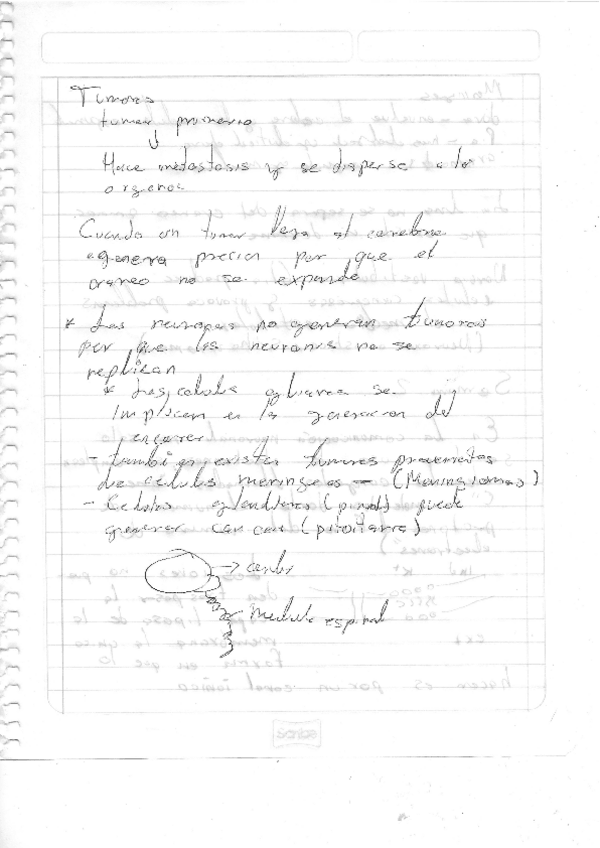 Tumores
tumor primario
↓
Hace metastasis y se dispersa a los
organos
Cuando un tumor llega al cerebro
genera presion por que el
craneo no se expande
* Las neuronas no generan tumores
por que las neuronas no se
replican
* Las celulas gliares se
implican en la generacion del
cancer
- tambien existen tumores provenientes
de celulas meningeas - (Meningiomas)
- Celulas glandulares (pineal) puede
generar cancer (pituitaria)
→ cerebro
Medula espinal